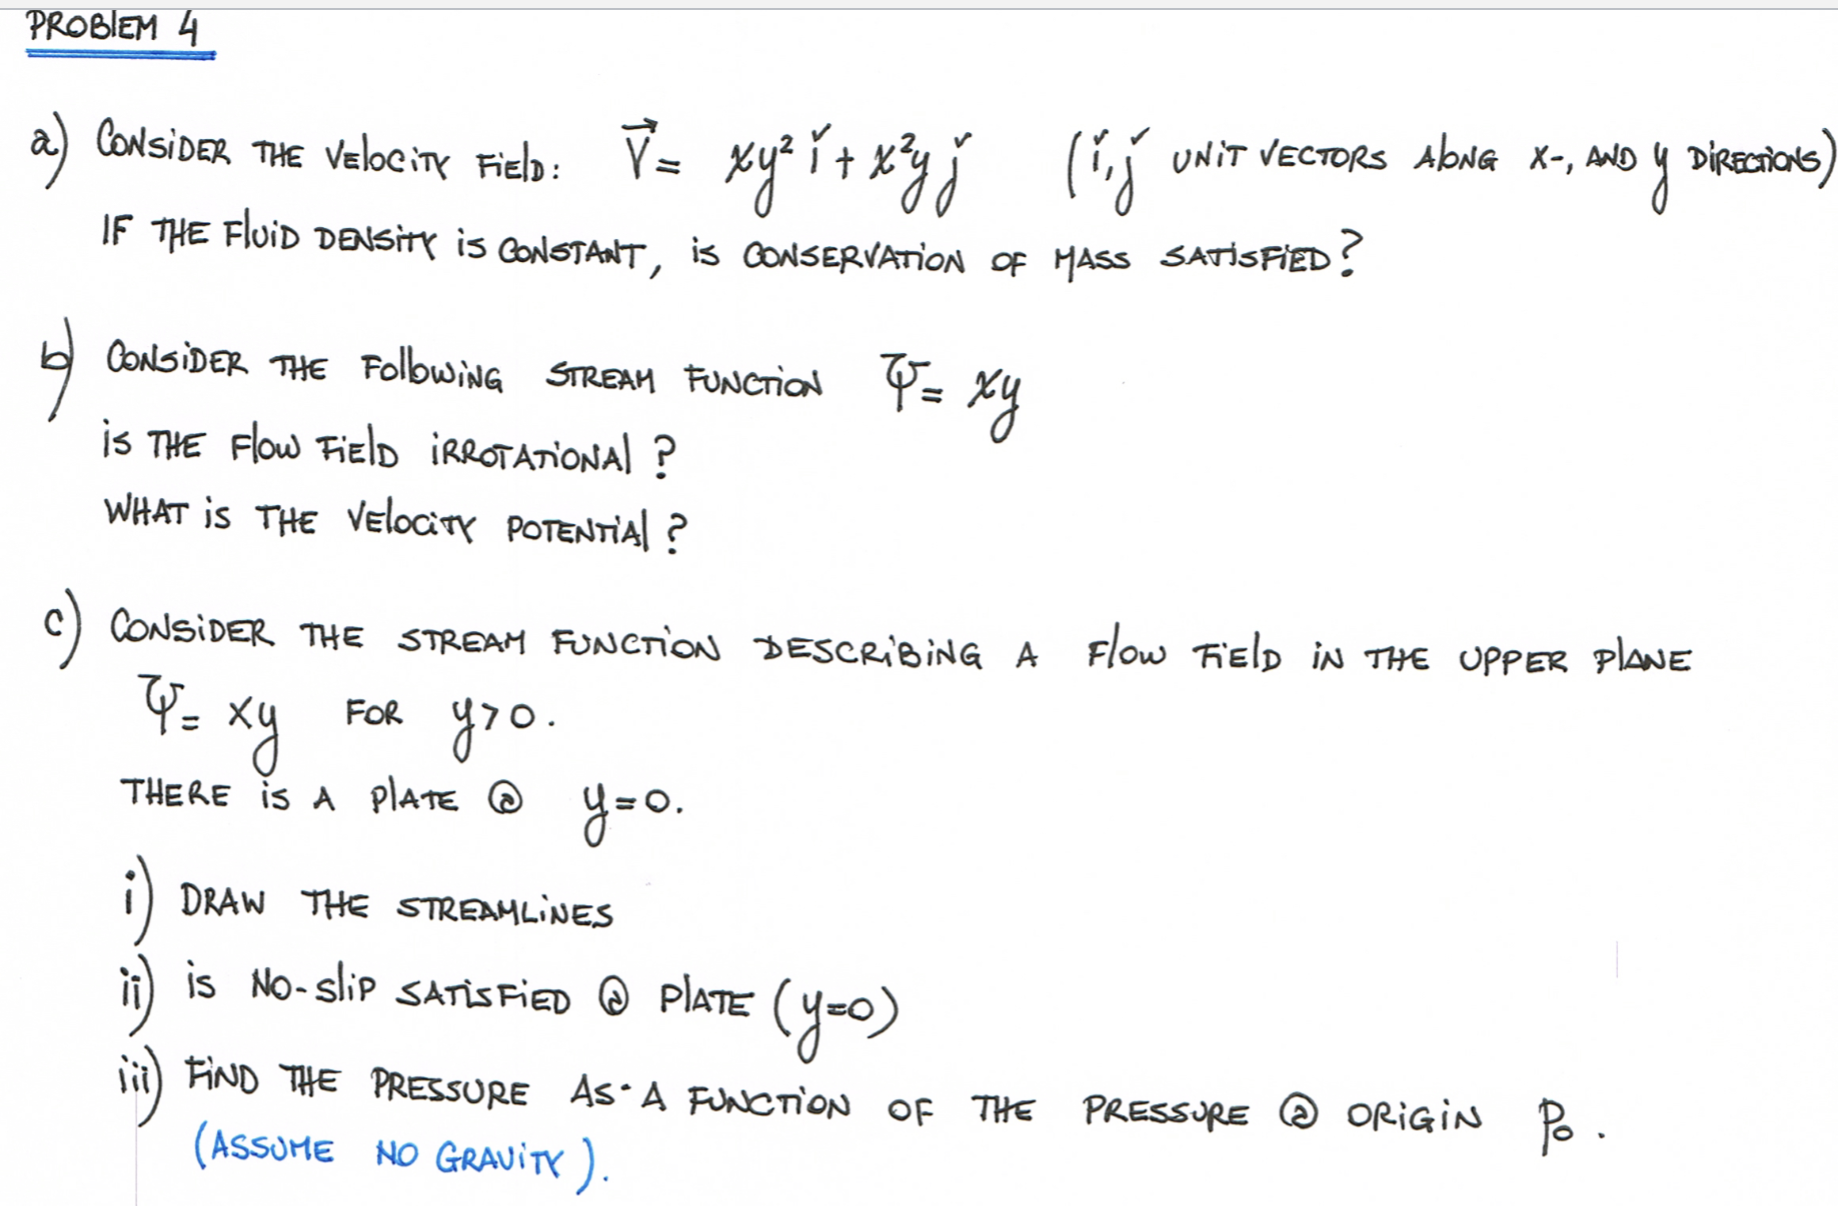 PROBLEM 4
a) CONSIDER THE VELOCITY FIELD: V⃗ = xy² ǐ + x²y ǰ (ǐ, ǰ UNIT VECTORS ALONG X-, AND y DIRECTIONS)
IF THE FLUID DENSITY IS CONSTANT, IS CONSERVATION OF MASS SATISFIED?
b) CONSIDER THE FOLLOWING STREAM FUNCTION Ψ = xy
IS THE FLOW FIELD IRROTATIONAL?
WHAT IS THE VELOCITY POTENTIAL?
c) CONSIDER THE STREAM FUNCTION DESCRIBING A FLOW FIELD IN THE UPPER PLANE
Ψ = xy FOR y>0.
THERE IS A PLATE @ y=0.
i) DRAW THE STREAMLINES
ii) IS NO-SLIP SATISFIED @ PLATE (y=0)
iii) FIND THE PRESSURE AS A FUNCTION OF THE PRESSURE @ ORIGIN P₀.
(ASSUME NO GRAVITY).